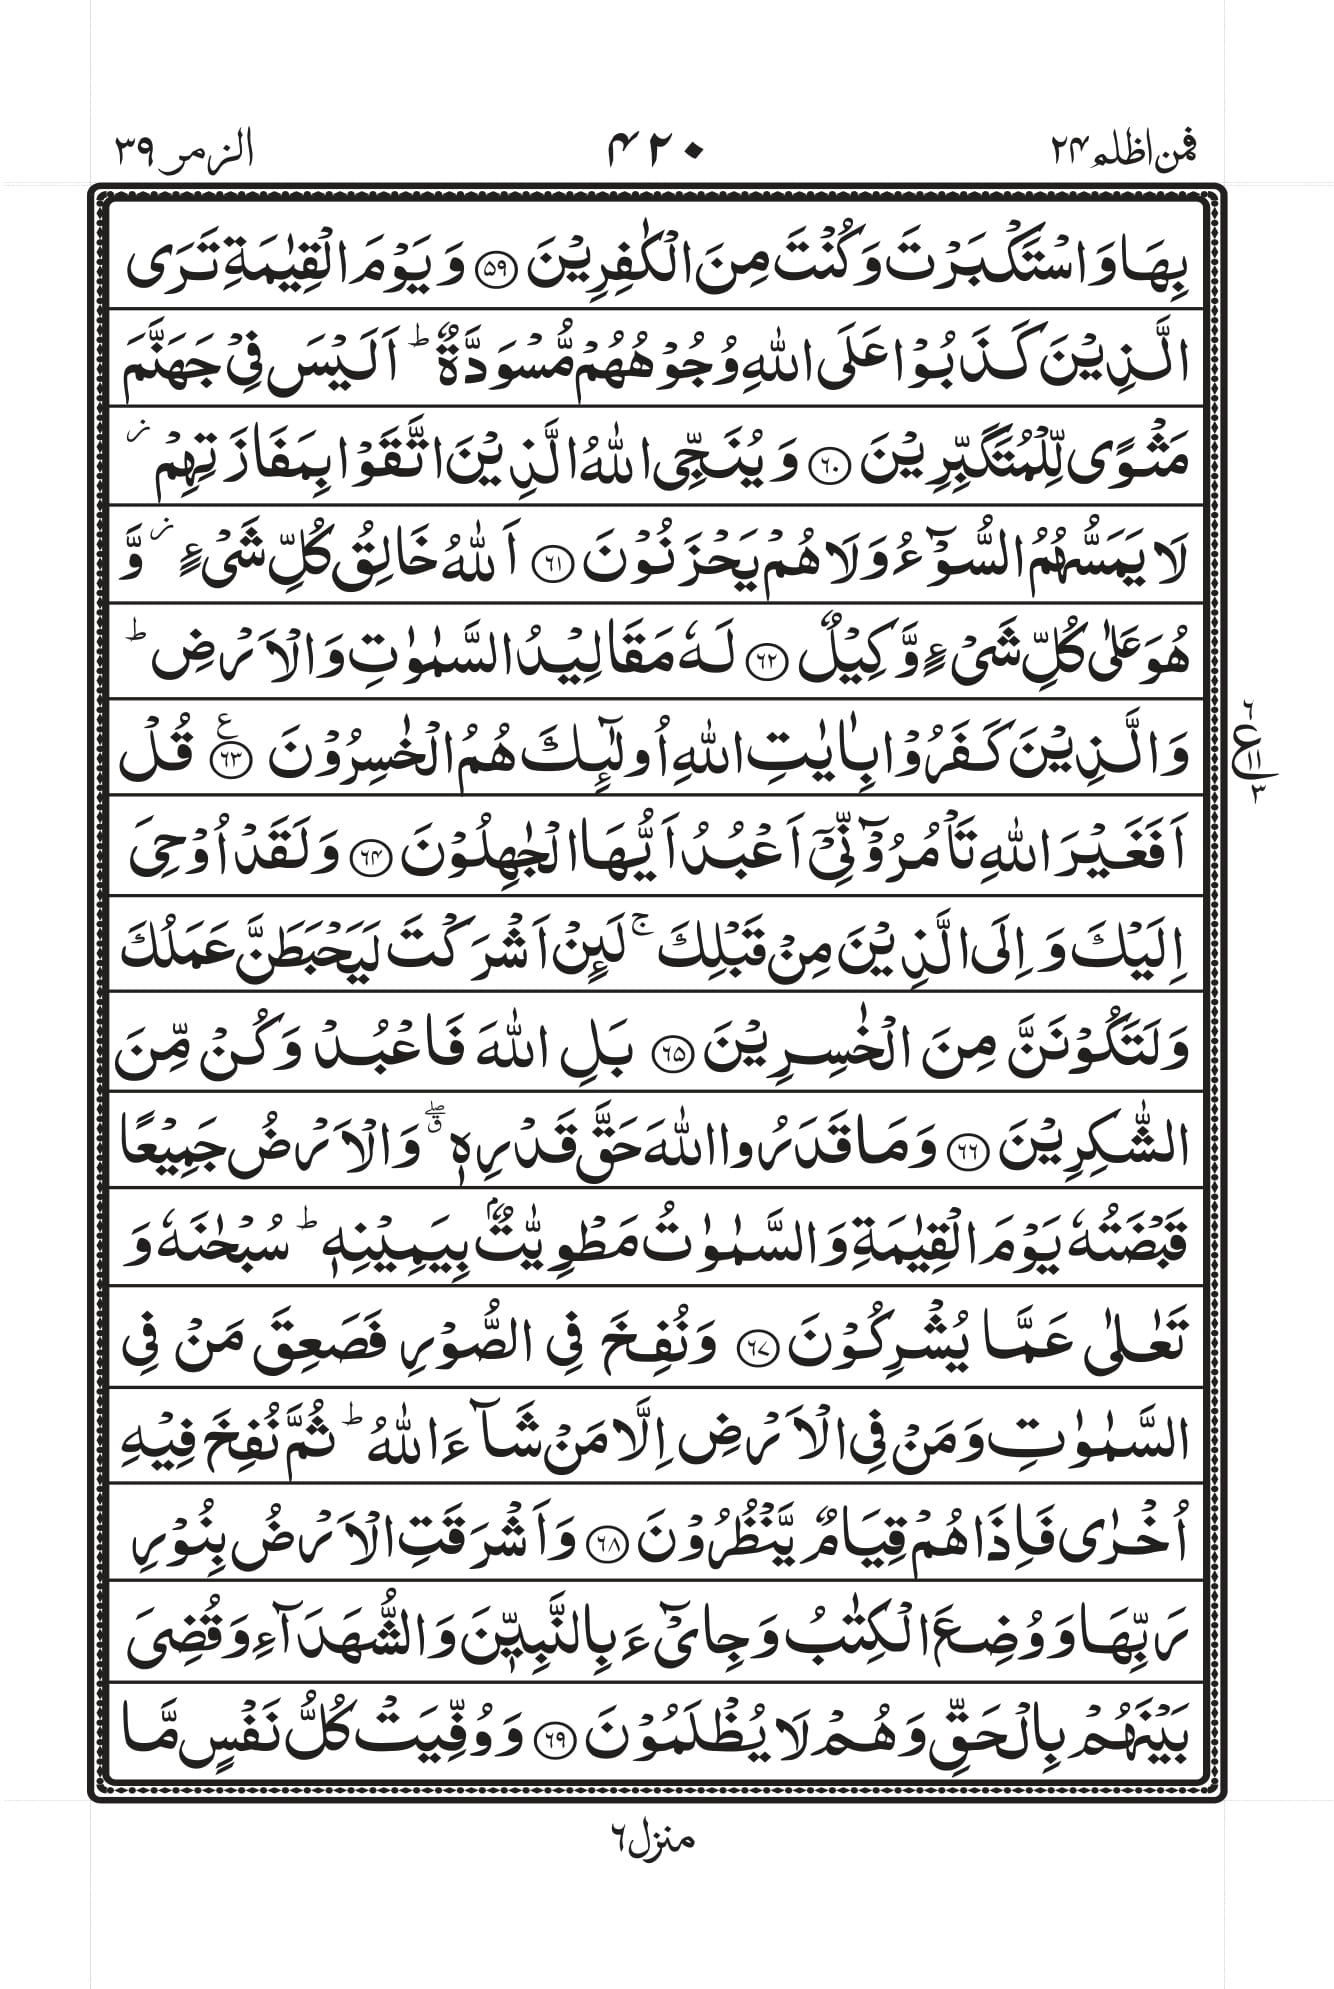 فمن اظلم ٢٤ ٤٢٠ الزمر ٣٩
بِهَا وَاسْتَكْبَرْتَ وَكُنْتَ مِنَ الْكٰفِرِيْنَ ﴿٥٩﴾ وَيَوْمَ الْقِيٰمَةِ تَرَى
الَّذِيْنَ كَذَبُوْا عَلَى اللّٰهِ وُجُوْهُهُمْ مُّسْوَدَّةٌ ؕ اَلَيْسَ فِيْ جَهَنَّمَ
مَثْوًى لِّلْمُتَكَبِّرِيْنَ ﴿٦٠﴾ وَيُنَجِّى اللّٰهُ الَّذِيْنَ اتَّقَوْا بِمَفَازَتِهِمْ ؗ
لَا يَمَسُّهُمُ السُّوْٓءُ وَلَا هُمْ يَحْزَنُوْنَ ﴿٦١﴾ اَللّٰهُ خَالِقُ كُلِّ شَيْءٍ ؗ وَّ
هُوَ عَلٰى كُلِّ شَيْءٍ وَّكِيْلٌ ﴿٦٢﴾ لَهٗ مَقَالِيْدُ السَّمٰوٰتِ وَالْاَرْضِ ؕ
وَالَّذِيْنَ كَفَرُوْا بِاٰيٰتِ اللّٰهِ اُولٰٓئِكَ هُمُ الْخٰسِرُوْنَ ﴿٦٣﴾ ع قُلْ
٦ ع ١١ ٣
اَفَغَيْرَ اللّٰهِ تَاْمُرُوْٓنِّيْٓ اَعْبُدُ اَيُّهَا الْجٰهِلُوْنَ ﴿٦٤﴾ وَلَقَدْ اُوْحِيَ
اِلَيْكَ وَاِلَى الَّذِيْنَ مِنْ قَبْلِكَ ۚ لَئِنْ اَشْرَكْتَ لَيَحْبَطَنَّ عَمَلُكَ
وَلَتَكُوْنَنَّ مِنَ الْخٰسِرِيْنَ ﴿٦٥﴾ بَلِ اللّٰهَ فَاعْبُدْ وَكُنْ مِّنَ
الشّٰكِرِيْنَ ﴿٦٦﴾ وَمَا قَدَرُوا اللّٰهَ حَقَّ قَدْرِهٖ ۗۖ وَالْاَرْضُ جَمِيْعًا
قَبْضَتُهٗ يَوْمَ الْقِيٰمَةِ وَالسَّمٰوٰتُ مَطْوِيّٰتٌۢ بِيَمِيْنِهٖ ؕ سُبْحٰنَهٗ وَ
تَعٰلٰى عَمَّا يُشْرِكُوْنَ ﴿٦٧﴾ وَنُفِخَ فِي الصُّوْرِ فَصَعِقَ مَنْ فِي
السَّمٰوٰتِ وَمَنْ فِي الْاَرْضِ اِلَّا مَنْ شَآءَ اللّٰهُ ؕ ثُمَّ نُفِخَ فِيْهِ
اُخْرٰى فَاِذَا هُمْ قِيَامٌ يَّنْظُرُوْنَ ﴿٦٨﴾ وَاَشْرَقَتِ الْاَرْضُ بِنُوْرِ
رَبِّهَا وَوُضِعَ الْكِتٰبُ وَجِايْٓءَ بِالنَّبِيّٖنَ وَالشُّهَدَآءِ وَقُضِيَ
بَيْنَهُمْ بِالْحَقِّ وَهُمْ لَا يُظْلَمُوْنَ ﴿٦٩﴾ وَوُفِّيَتْ كُلُّ نَفْسٍ مَّا
منزل ٦